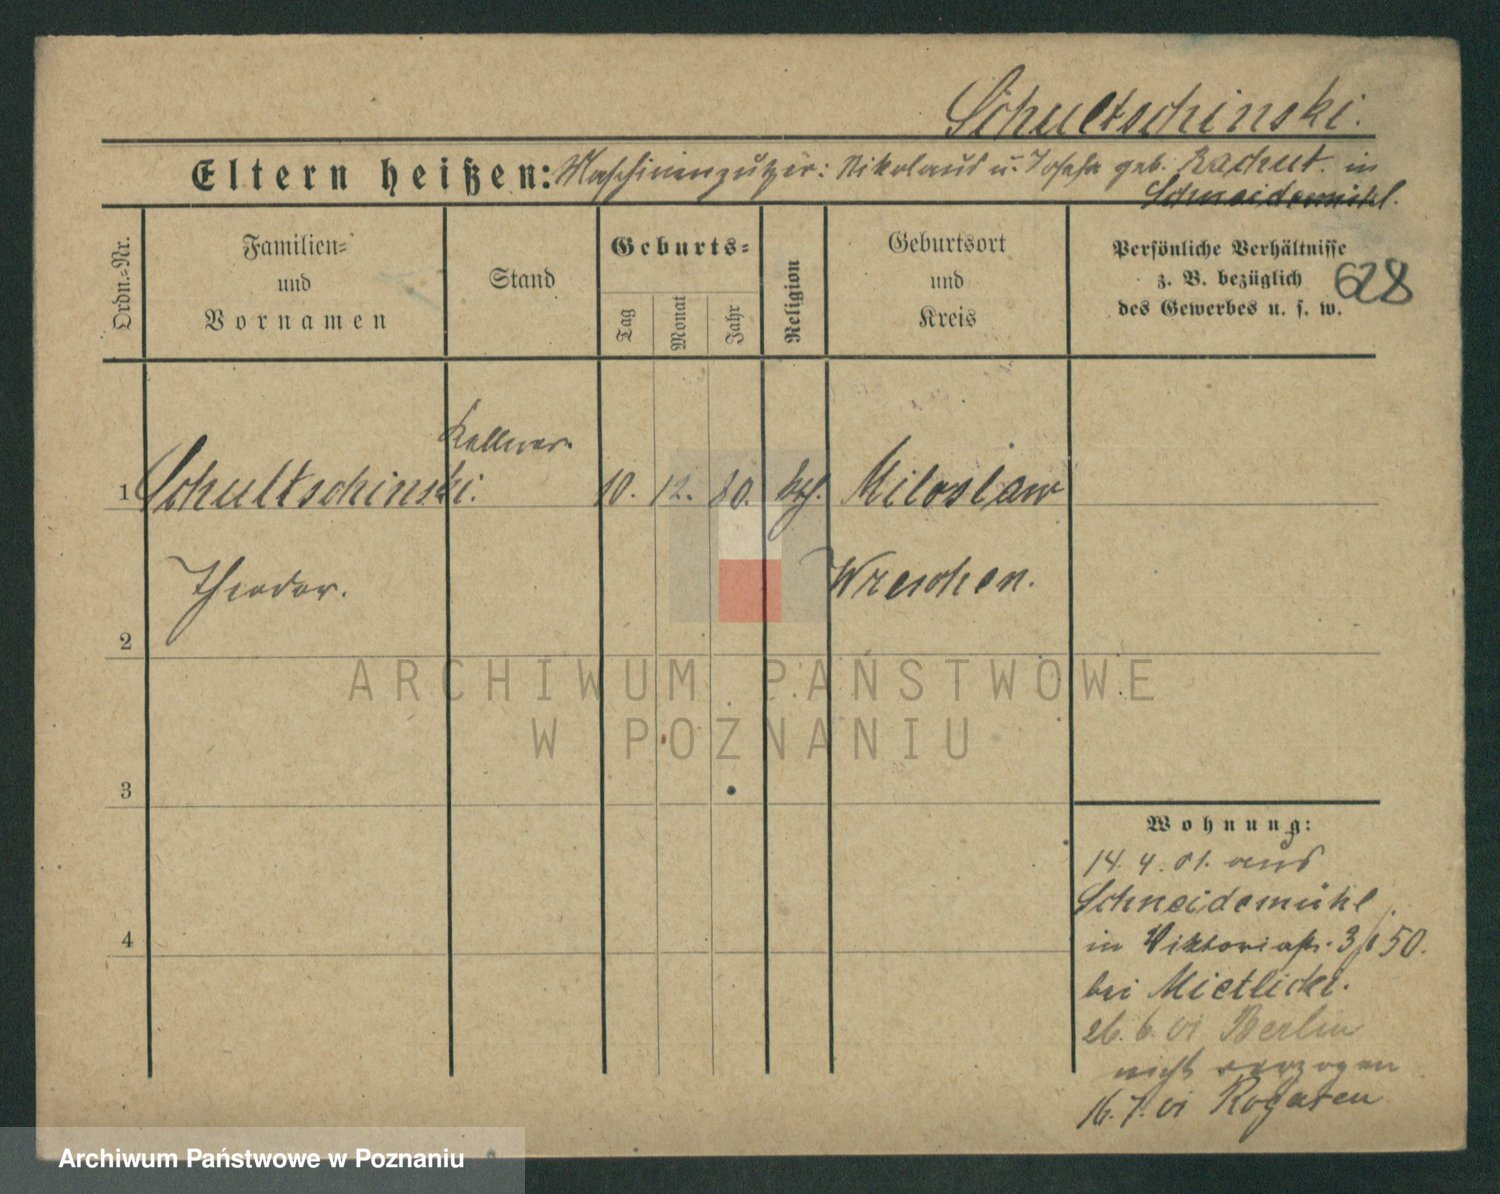 Schultschinski.
Eltern heißen: Maschinenputzer: Nikolaus u. Josefa geb. Rachut. in
Schneidemühl.
Ordn.-Nr.
Familien-
und
Vornamen
Stand
Geburts-
Tag
Monat
Jahr
Religion
Geburtsort
und
Kreis
Persönliche Verhältnisse
z. B. bezüglich
des Gewerbes u. s. w.
628
Kellner
1 Schultschinski. 10. 12. 80. kth. Miloslaw
Theodor. Wreschen.
2
ARCHIWUM PAŃSTWOWE
W POZNANIU
3
Wohnung:
14. 4. 01. aus
Schneidemühl
4
in Viktoriastr. 50.
bei Mietlicki.
26. 6. 01 Berlin
nicht verzogen
16. 7. 01 Rogasen
Archiwum Państwowe w Poznaniu